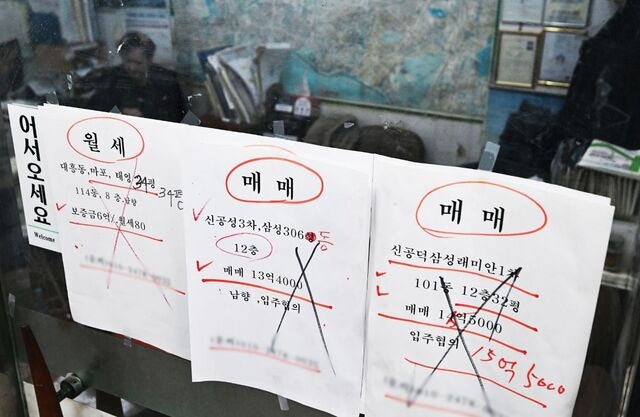 어서오세요
Welcome
월 세
대흥동, 마포, 태영 34평
34평
114동, 8층, 남향
보증금6억/,월세80
매 매
신공성3차,삼성306동
12층
매매 13억4000
남향 ,입주협의
매 매
신공덕삼성래미안1차
101동 12층32평
매매 14억5000
15억 5000
입주협의